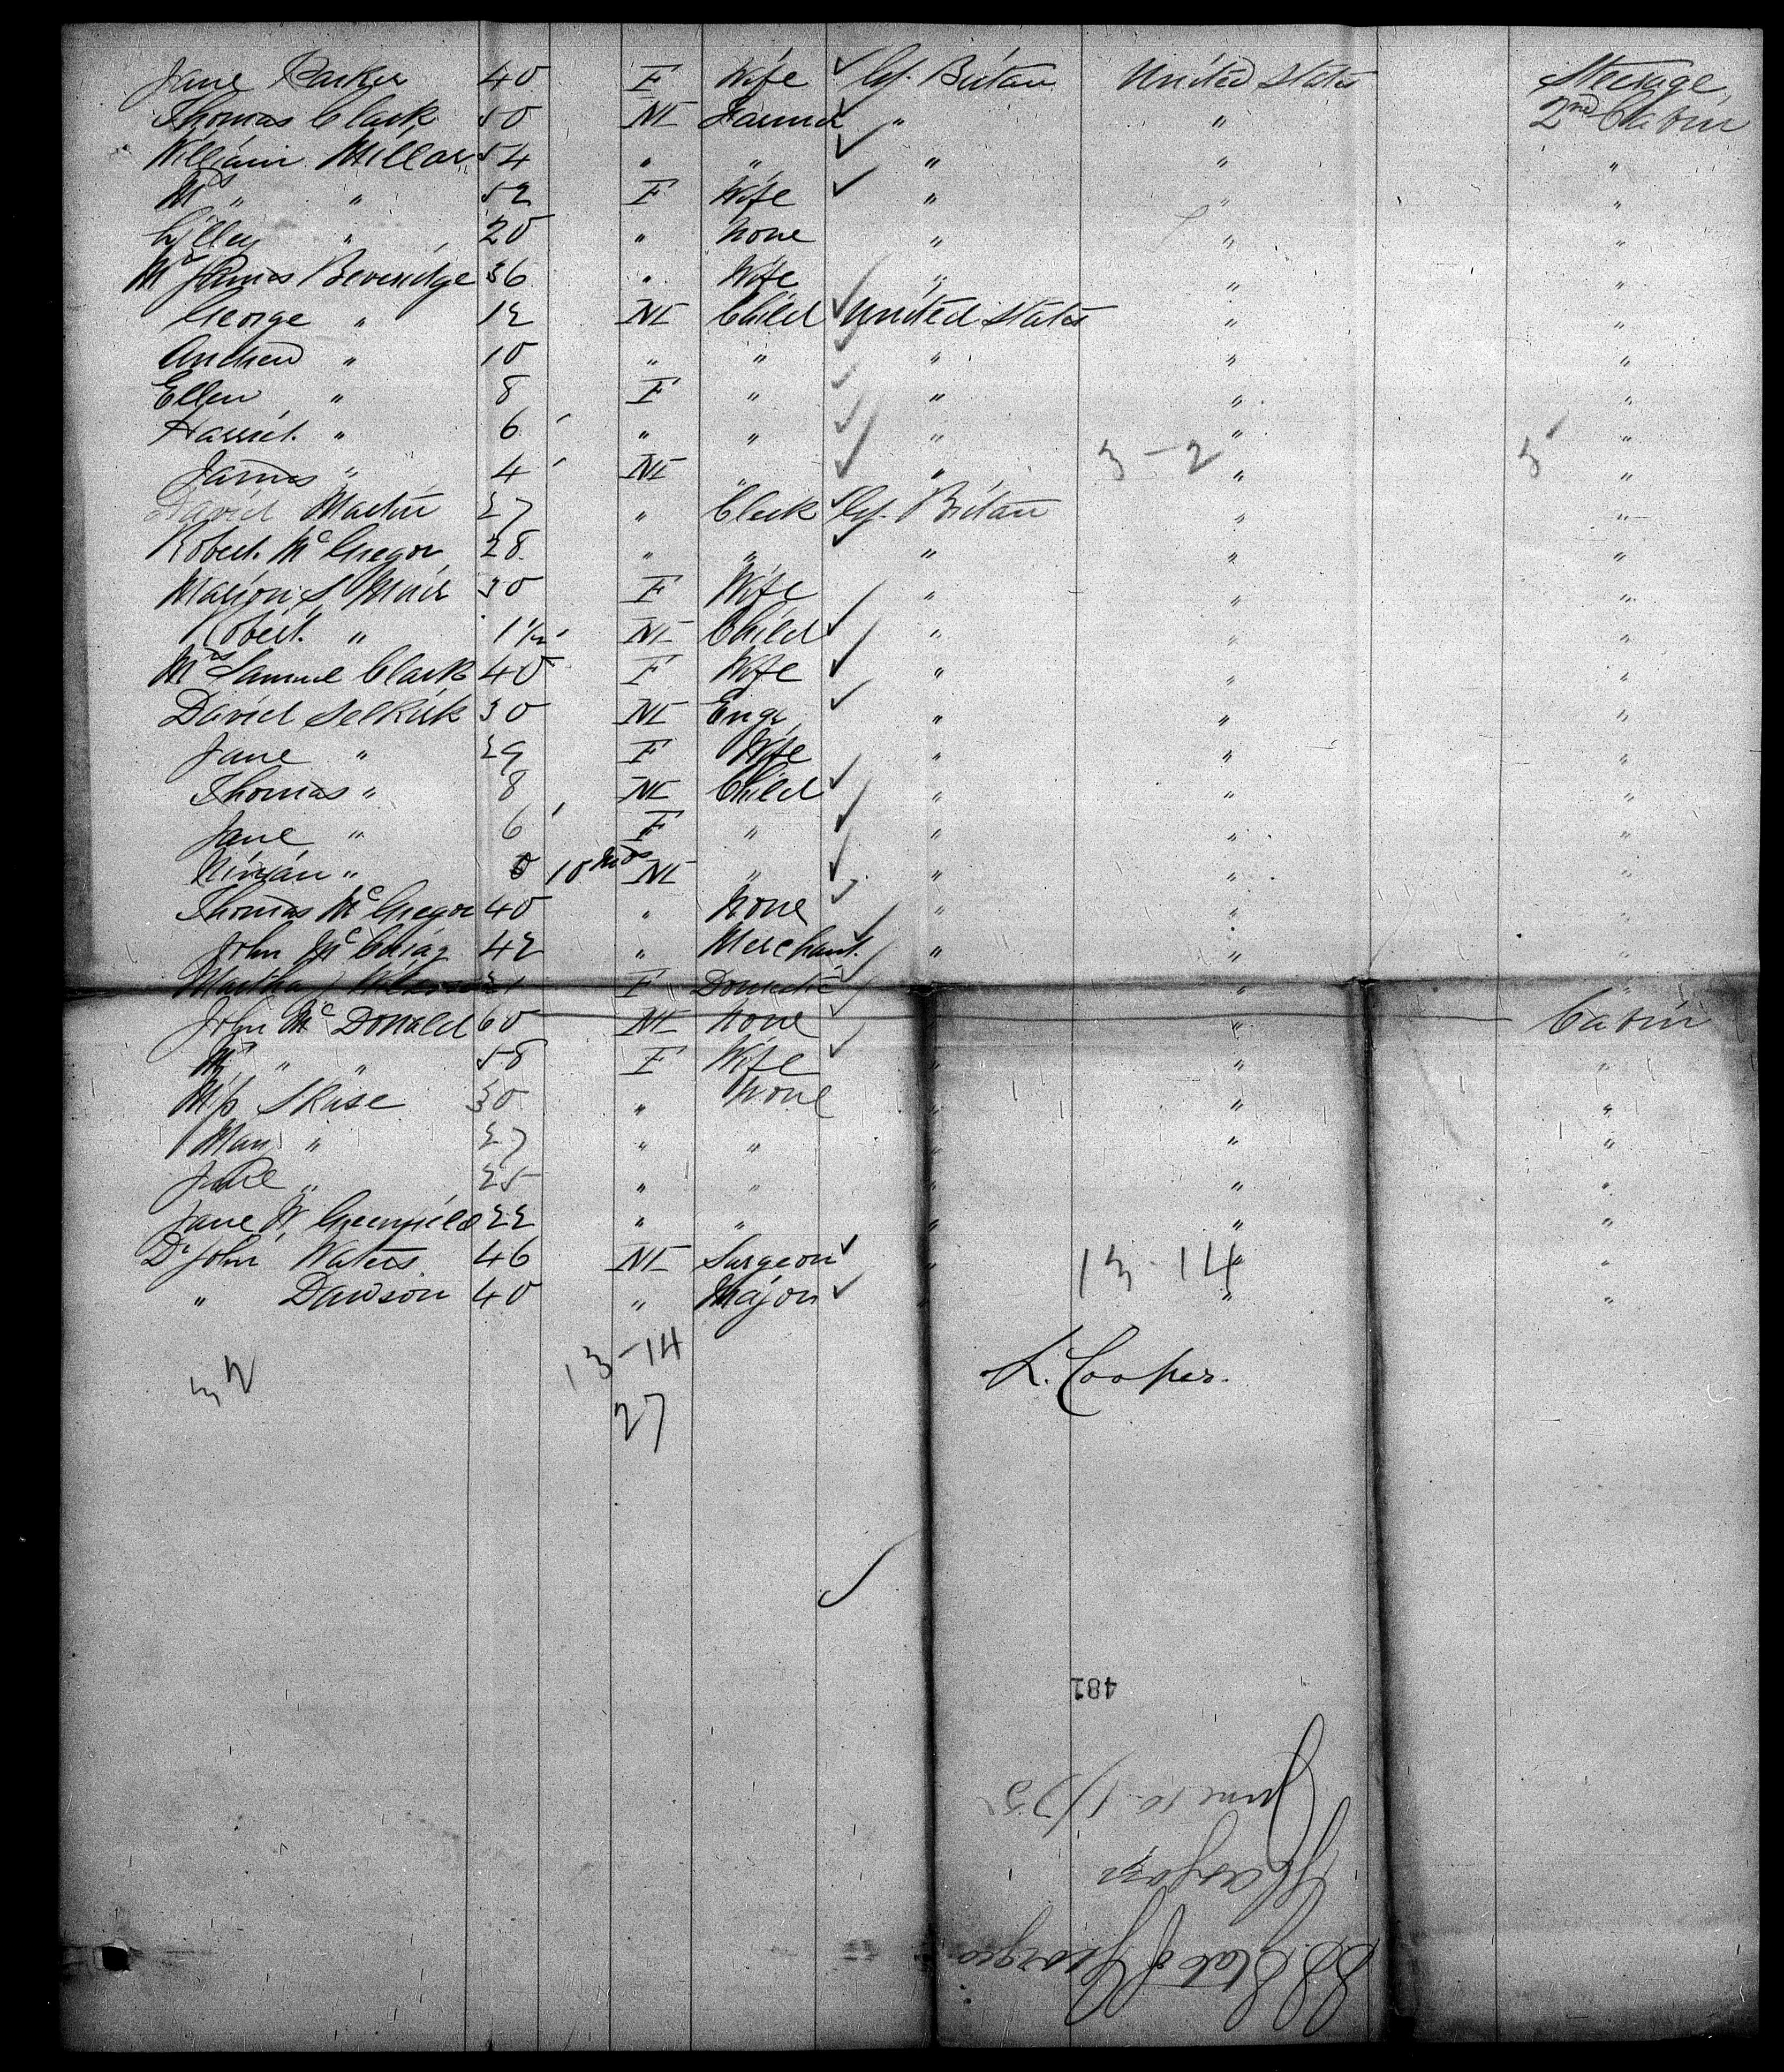 Jane Parker 40 F Wife Gt. Britan United States Steerage
Thomas Clark 50 M Farmer " " 2nd Cabin
William Millar 54 " " " " "
Mrs " " 52 F Wife " " "
Lilley " 20 " None " " "
Mrs James Beveridge 36 " Wife " " "
George " 12 M Child United States " "
Andrew " 10 " " " " "
Ellen " 8 F " " " "
Harriet " 6 " " " " "
James " 4 M " " " "
3-2 5
David Martin 27 " Clerk Gt. Britan " "
Robert McGregor 28 " " " " "
Marion S Muir 30 F Wife " " "
Robert " 1 1/12 M Child " " "
Mrs Samuel Clark 40 F Wife " " "
David Selkirk 30 M Engr " " "
Jane " 29 F Wife " " "
Thomas " 8 M Child " " "
Jane " 6 F " " " "
Ninian " 0 10 Mos M " " " "
Thomas McGregor 40 " None " " "
John McCraig 42 " Merchant " " "
Martha 21 F Domestic " " "
John McDonald 60 M None " " Cabin
Mrs " " 58 F Wife " " "
Miss Skase 30 " None " " "
Mary " 27 " " " " "
" 25 " " " " "
Jane W Greenfield 22 " " " " "
Dr John Waters 46 M Surgeon " " "
" Dawson 40 " Major " " "
13-14
13-14
32
27
L. Cooper.
481
June 10-1/75
Glasgow
SS. State of Georgia